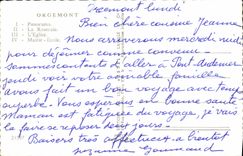 ORGEMONT
I - Panorama
II - La Roseraie
III - L'Église
IV - Mairie - École
lundi
Bien chère cousine Jeanne
Nous arriverons mercredi midi
pour déjeuner comme convenu
sommes contents d'aller à Pont-Audemer
voir votre aimable famille
avons fait un bon voyage avec temps
superbe. Vous espérons en bonne santé
Maman est fatiguée du voyage, je vais
la faire se reposer tous jours.
Baisers très affectueux à bientôt
Suzanne